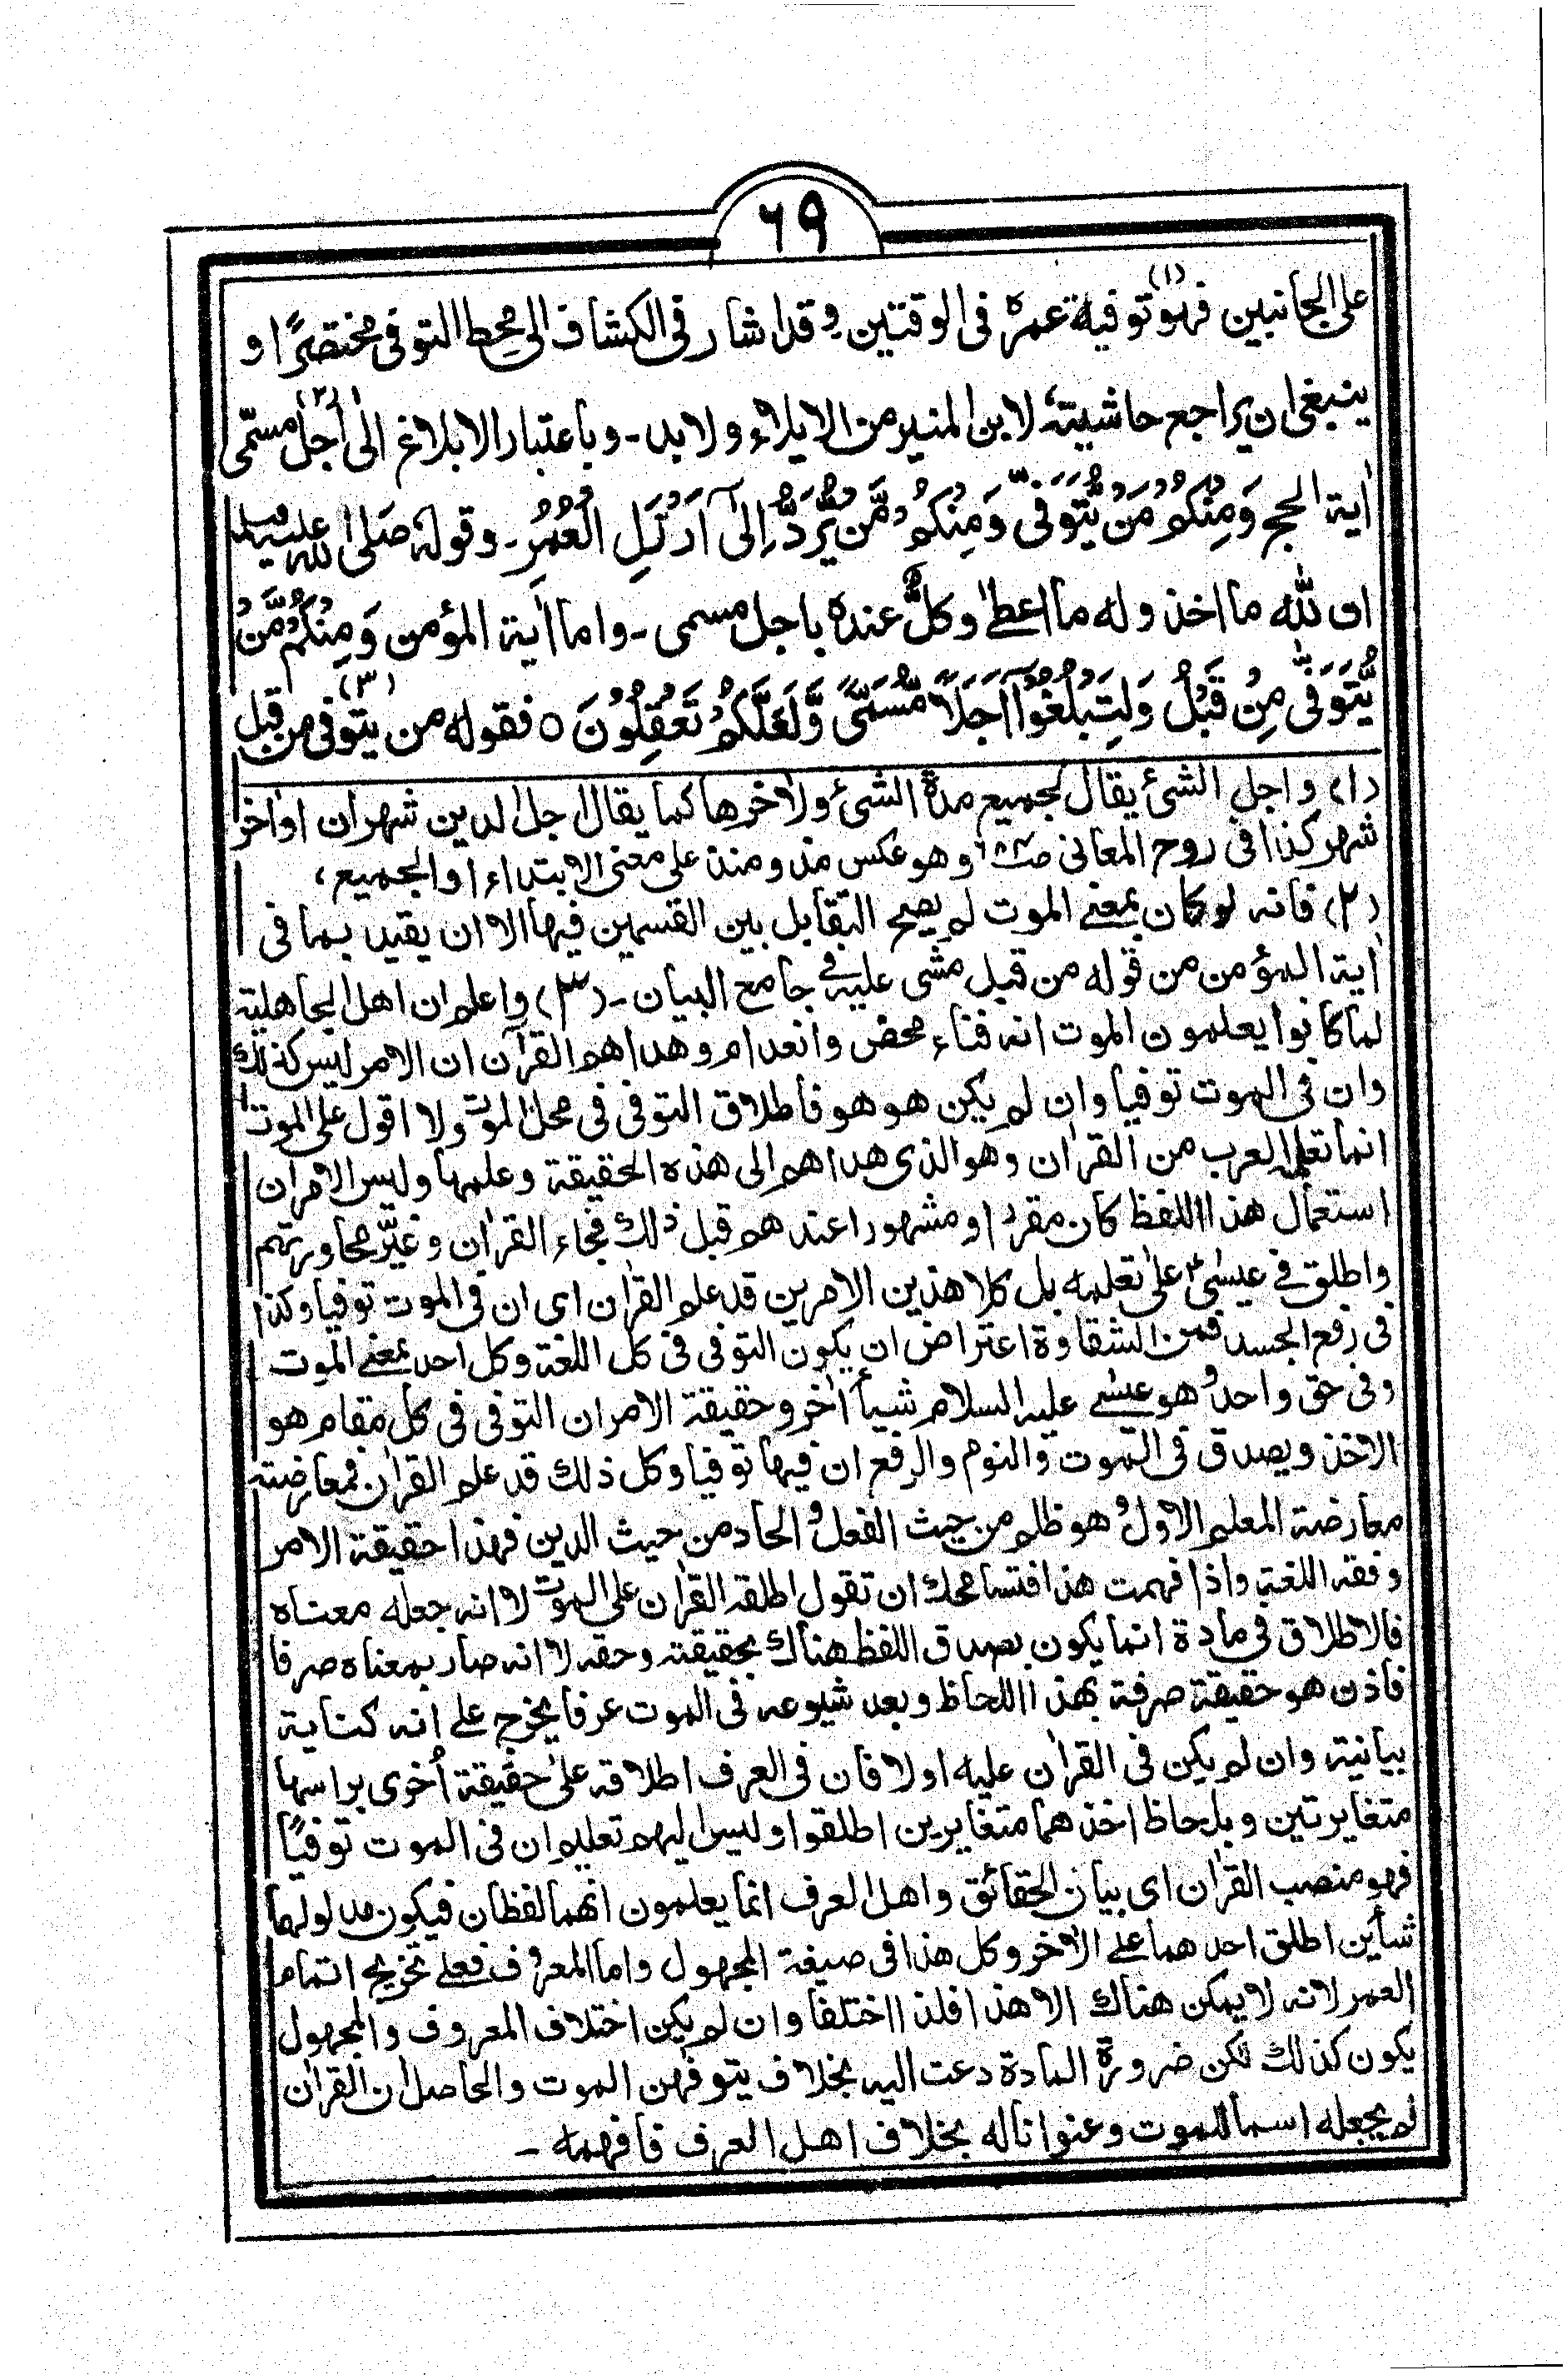 ٦٩
على الجانبين فهو(١) توفية عمره فى الوقتين۔ وقد اشار فى الكشاف الى محط التوفى مختصرًا و
ينبغى ان يراجع حاشيته لابن المنير من الايلاء ولابد۔ وباعتبار الابلاغ الى(٢) اجل مسمّى
اٰية الحج وَمِنْكُمْ مَّنْ يُّتَوَفّٰى وَمِنْكُمْ مَّنْ يُّرَدُّ اِلٰٓى اَرْذَلِ الْعُمُرِ۔ وقوله صلى الله عليه وسلم
ان لله ما اخذ وله ما اعطىٰ وكلٌّ عنده باجل مسمى۔ واما اٰية المؤمن وَمِنْكُمْ مَّنْ
يُّتَوَفّٰى مِنْ قَبْلُ وَلِتَبْلُغُوْٓا اَجَلًا مُّسَمًّى وَّلَعَلَّكُمْ تَعْقِلُوْنَ ٥ فقوله من يتوفى(٣) من قبل
(١) واجل الشئ يقال لجميع مدة الشئ ولاٰخرها كما يقال اجل الدين شهران او اٰخر
شهر كذا فى روح المعانى وهو عكس مذ ومنذ على معنى الابتداء او الجميع،
(٢) فانه لو كان بمعنے الموت لم يصح التقابل بين القسمين فيها الا ان يقيد بما فى
اٰية المؤمن من قوله من قبل مشى عليه فے جامع البيان۔ (٣) واعلم ان اهل الجاهلية
لما كانوا يعلمون الموت انه فناء محض وانعدام وهداهم القرآن ان الامر ليس كذلك
وان فى الموت توفيا وان لم يكن هو هو فاطلاق التوفى فى محل الموت ولا اقول على الموت
انما تعلم العرب من القراٰن وهو الذى هداهم الى هذه الحقيقة وعلمها وليس الامر ان
استعمال هذا اللفظ كان مقررا ومشهورا عندهم قبل ذلك فجاء القراٰن وغيّر محاورتهم
واطلق فے عيسىٰ على تعلمه بل كلا هذين الامرين قد علم القراٰن اى ان فى الموت توفيا وكذا
فى رفع الجسد فمن الشقاوة اعتراض ان يكون التوفى فى كل اللغة وكل احد بمعنے الموت
وفى حق واحد وهو عيسے عليه السلام شيأ اٰخر وحقيقة الامر ان التوفى فى كل مقام هو
الاخذ ويصدق فى الموت والنوم والرفع ان فيها توفيا وكل ذلك قد علم القراٰن فمعارضته
معارضة المعلم الاول وهو ظلم من حيث الفعل والحاد من حيث الدين فهذا حقيقة الامر
وفقه اللغة واذا فهمت هذا فتسامحك ان تقول اطلقه القراٰن على الموت لا انه جعله معناه
فالاطلاق فى مادة انما يكون بصدق اللفظ هناك بحقيقته وحقه لا انه صار بمعناه صرفا
فاذن هو حقيقة صرفة بهذا اللحاظ وبعد شيوعه فى الموت عرفا يخرج على انه كناية
بيانية وان لم يكن فى القراٰن عليه اولا فان فى العرف اطلاقه علىٰ حقيقة اُخرى براسها
متغايرتين وبلحاظ اخذهما متغايرين اطلقوا وليس اليهم تعليم ان فى الموت توفيًا
فهو منصب القراٰن اى بيان الحقائق واهل العرف انما يعلمون انهما لفظان فيكون مدلولهما
شأين اطلق احدهما علے الاٰخر وكل هذا فى صيغة المجهول واما المعروف فعلے تخريج اتمام
العمر لانه لا يمكن هناك الا هذا فلذا اختلفا وان لم يكن اختلاف المعروف والمجهول
يكون كذلك لكن ضرورة المادة دعت اليه بخلاف يتوفهن الموت والحاصل ان القراٰن
لم يجعله اسما للموت وعنوانا له بخلاف اهل العرف فافهمه۔